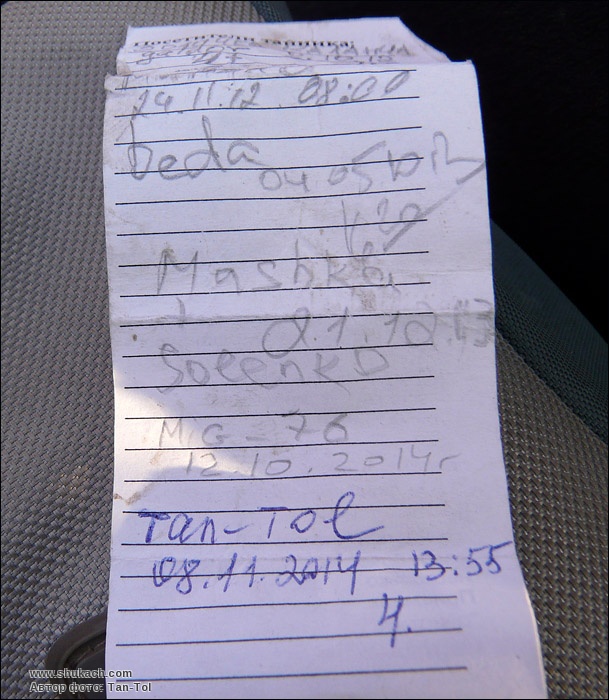 Посетители тайника:
24.11.12 08:00
Deda
04 05
Mashka
+
Solenko
MG-76
12.10.2014г
Tan-Tol
08.11.2014 13:55
Ч.
www.shukach.com
Автор фото: Tan-Tol